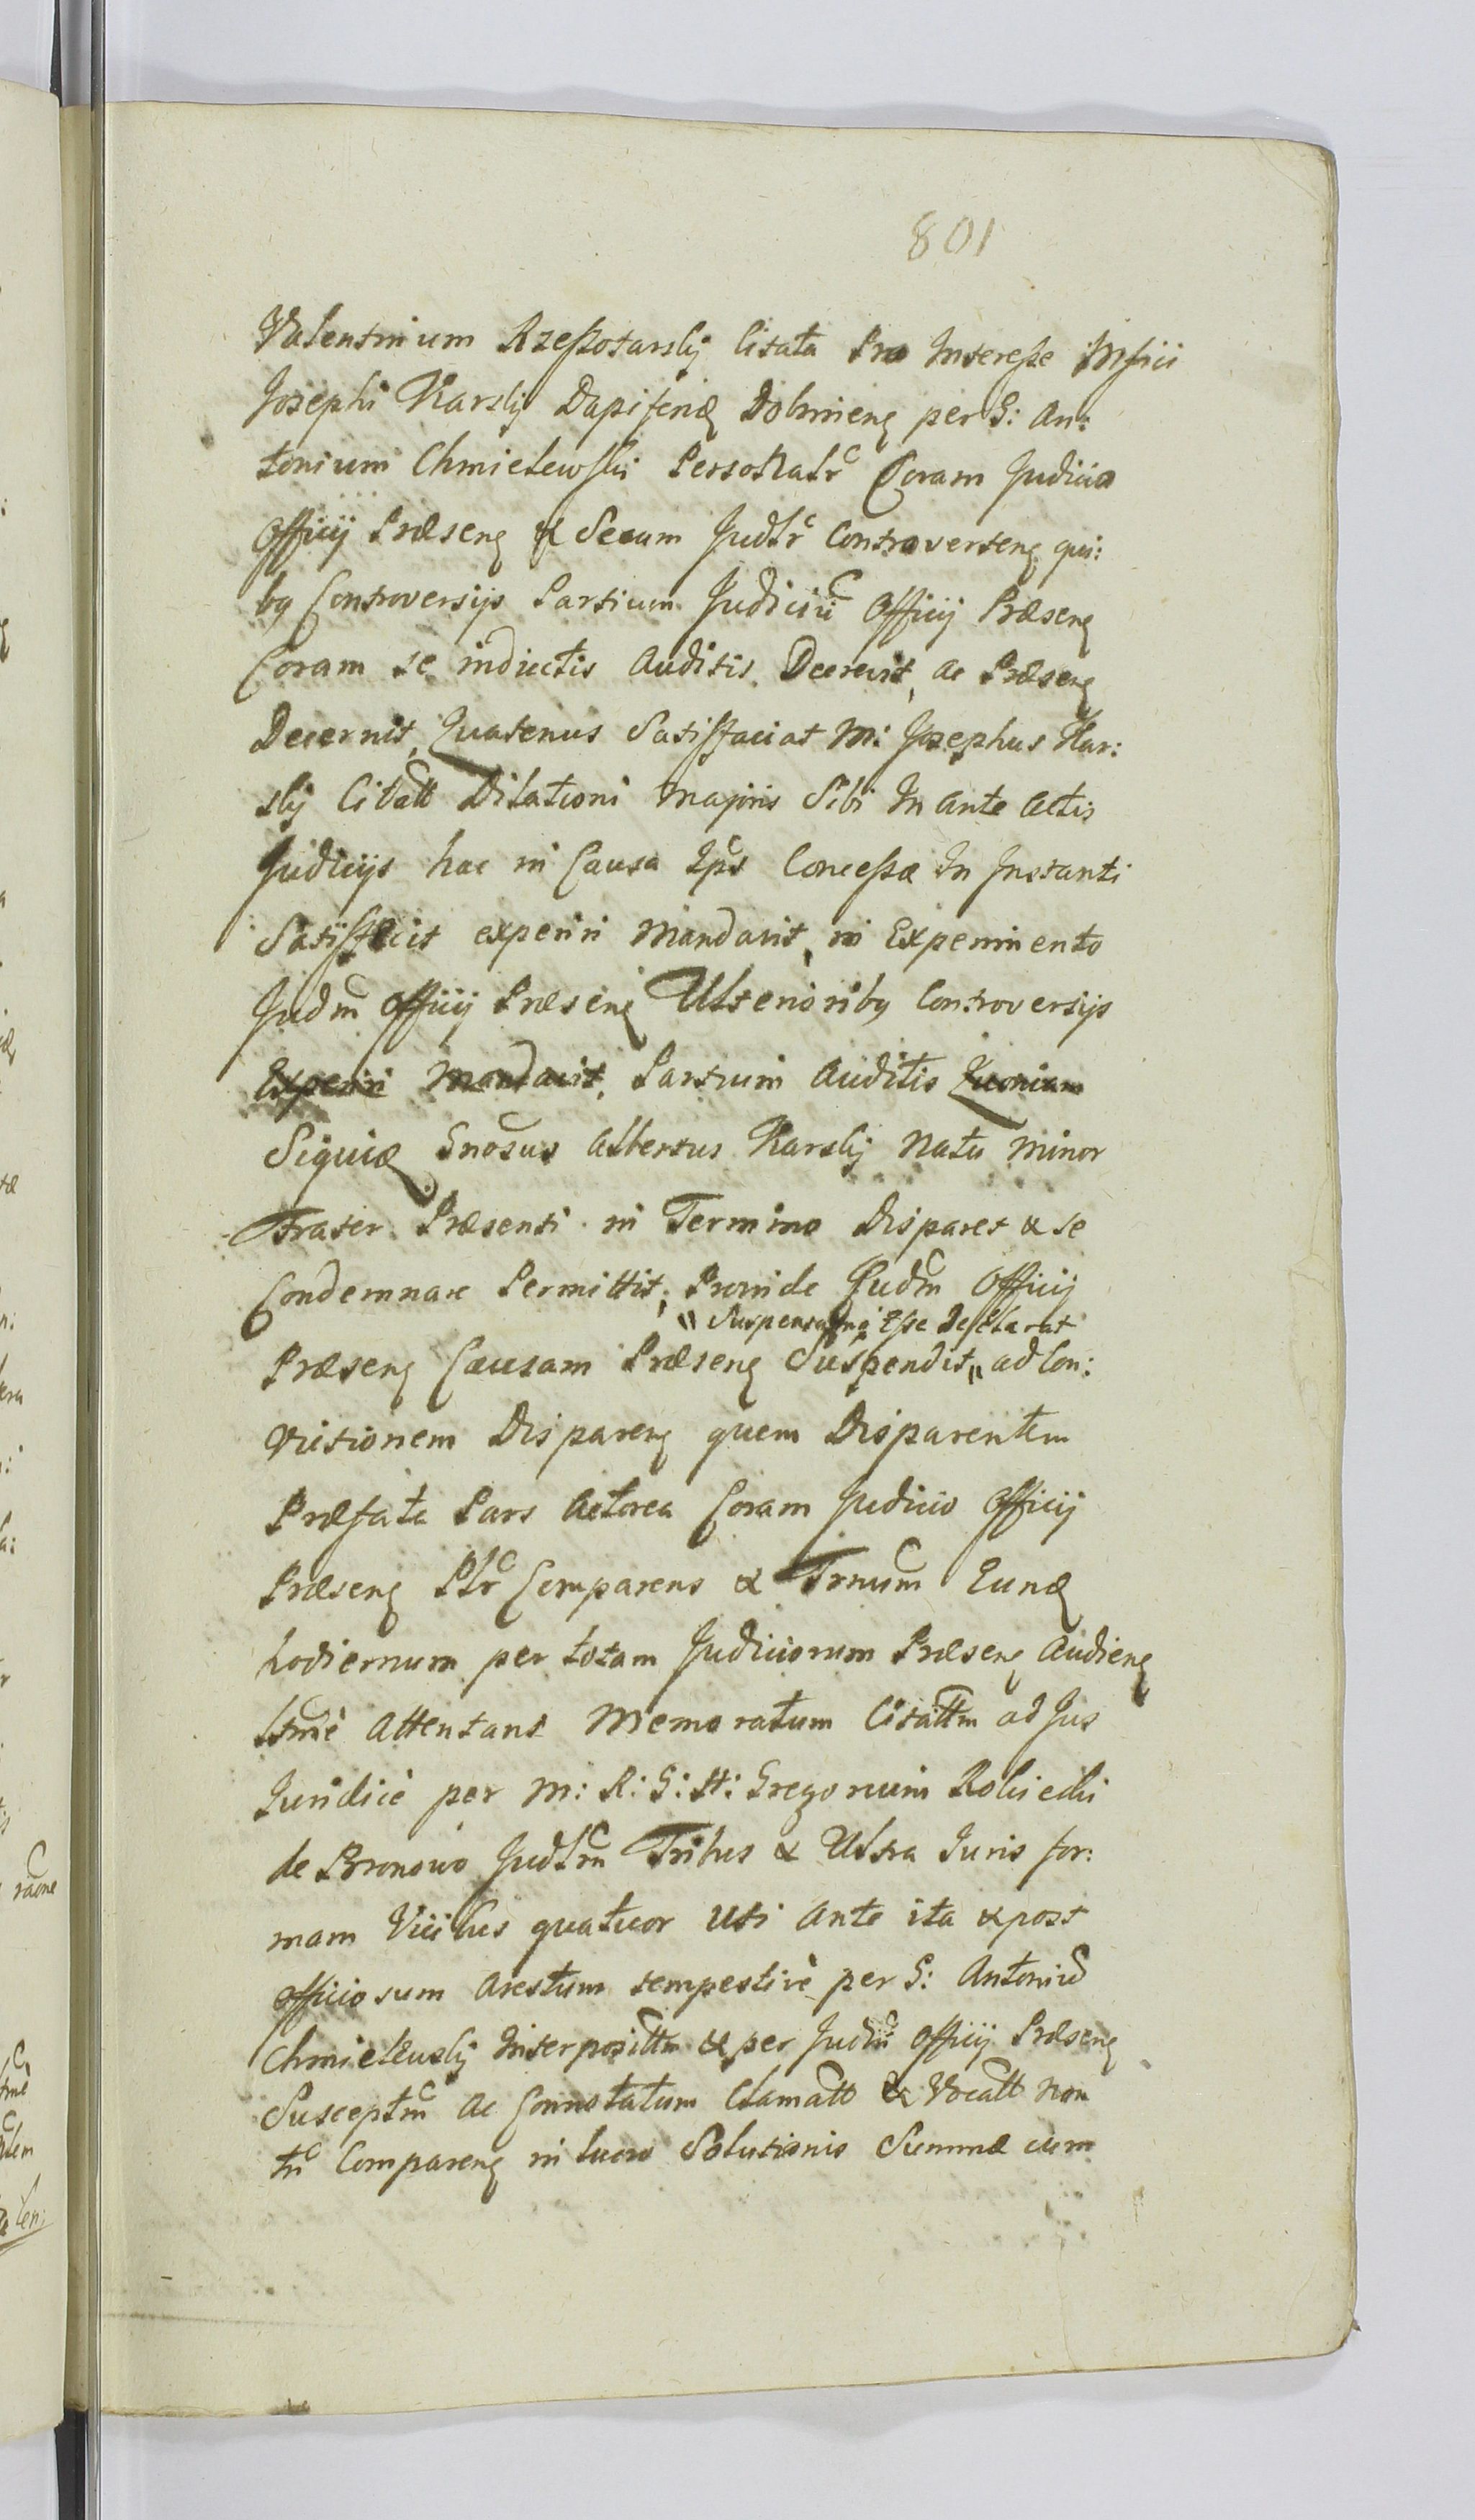 801
Valentinum Rzeszotarskj Citata Pro Interesse Mfici
Josephi Karskj Dapiferidę Dobrinenę per G: An:
tonium Chmielewski Personalr Coram Judicio
Officij Præsenę & Secum Judlr Controvertenę qui:
bq Controversijs Partium Judiciū Officij Præsenę
Coram se inductis Auditis Decrevit, ac Præsenę
Decernit, Quatenus Satisfaciat M: Josephus Kar:
skj Citatt Dilationi Majoris Sibi In Ante Actis
Judicijs hac in Causa Ips Concessæ In Instanti
Satisfecit experiri Mandavit, in Experimento
Judm Officij Præsenę Ulterioribq Controversijs
Experiri Mandavit, Partium Auditis Quoniam
Siquidę Gnosus Albertus Karskj Natu Minor
Frater Præsenti in Termino Disparet & se
Condemnare Permittit; Proinde Judm Officij
" Suspensamq Esse Declarat
Præsenę Causam Præsenę Suspendit " ad Con:
victionem Disparenę quem Disparentem
Præfata Pars Actorea Coram Judicio Officij
Præsenę Plr Comparens & Trnum Eundę
hodiernum per totam Judiciorum Præsenę Audienę
ltmè Attentans Memoratum Citattm ad Jus
Juridicè per M: R: G: H: Gregorium Robiecki
de Bronowo Judlrm Tribus & Ultra Juris for:
mam Vicibus quatuor Uti Ante ita & post
Officiosum Arestum tempestivè per G: Antoniū
Chmieleuskj Interposittm & per Judm Officij Præsenę
Susceptm ac Connotatum Clamatt & Vocatt Non
tn Comparenę in lucro Solutionis Summæ cum